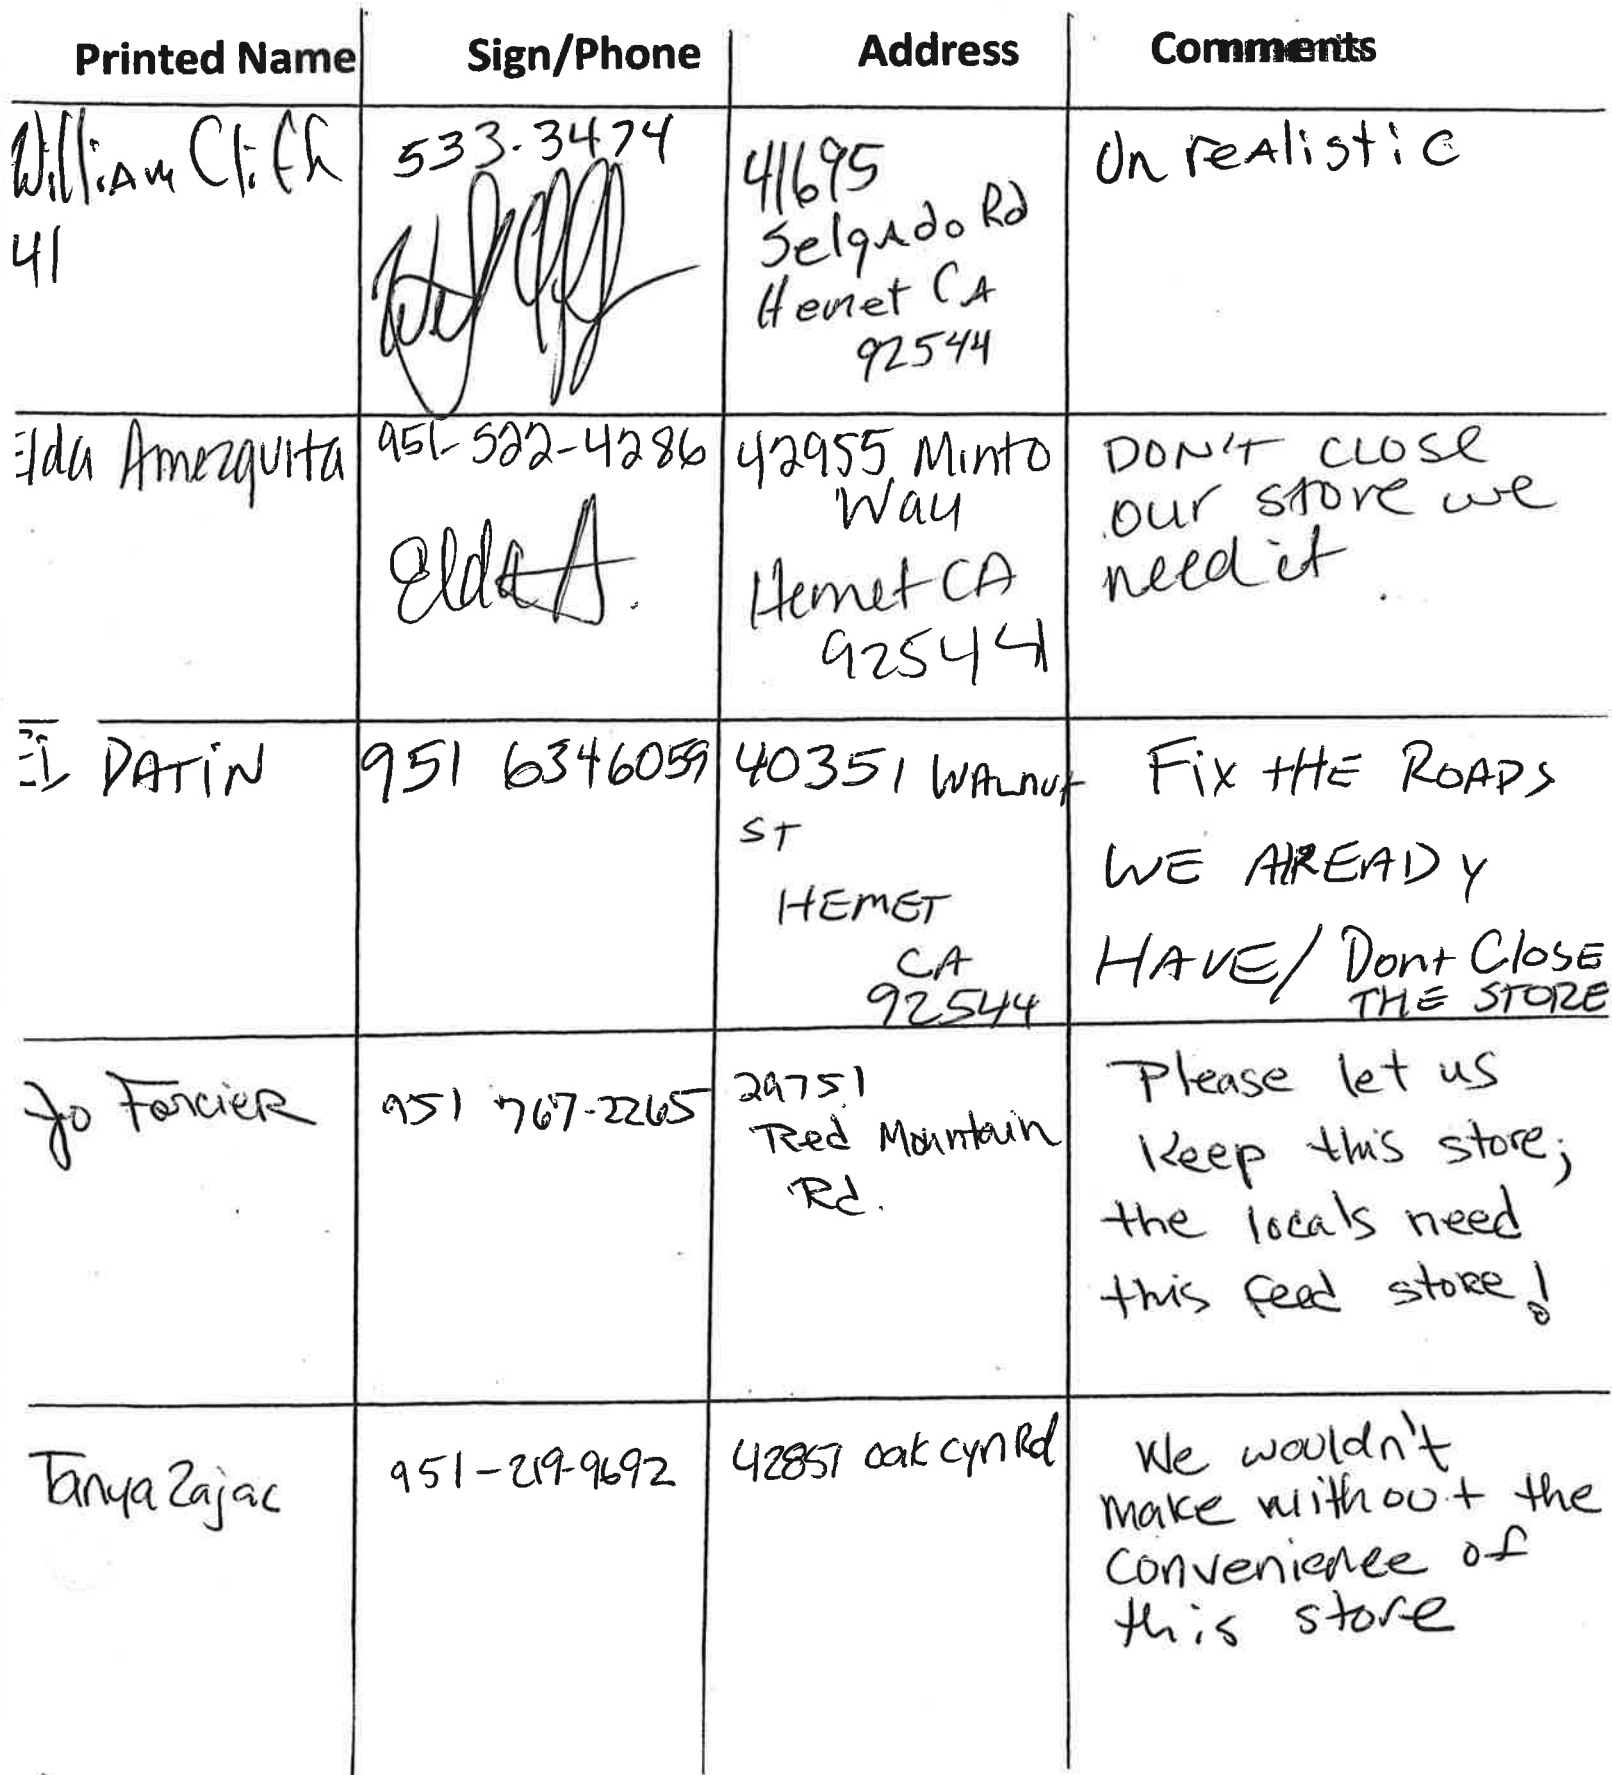 Printed Name Sign/Phone Address Comments
William
41
533-3474
41695
Selgado Rd
Hemet CA
92544
Unrealistic
Elda Amezquita
951-522-4286
Elda A.
42955 Minto
Way
Hemet CA
92544
DON'T CLOSE
our store we
need it.
DATIN
951 6346059
40351 WALNUT
ST
HEMET
CA
92544
Fix THE ROADS
WE ALREADY
HAVE/ Dont Close
THE STORE
Jo Forcier
951 767-2265
29751
Red Mountain
Rd.
Please let us
Keep this store;
the locals need
this feed store!
Tanya Zajac
951-219-9692
42857 oak cyn Rd
We wouldn't
make without the
convenience of
this store